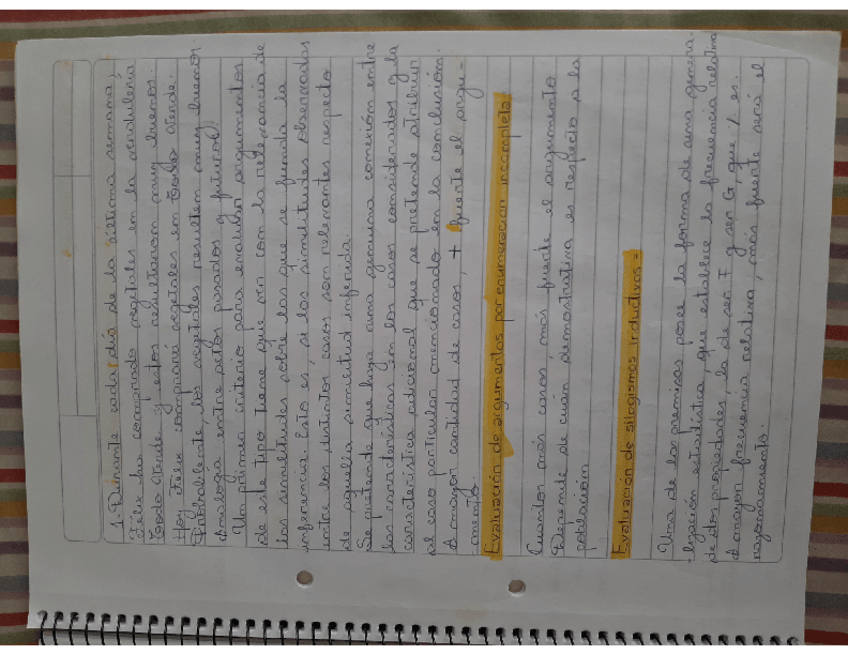 1-Durante cada día de la última semana,
Félix ha comprado vegetales en la verdulería
Todo Verde y estos resultaron muy buenos.
Hoy Félix comprará vegetales en Todo Verde.
Probablemente, los vegetales resulten muy buenos.
Analogía entre actos pasados y futuros
Un primer criterio para evaluar argumentos
de este tipo tiene que ver con la relevancia de
las similitudes sobre las que se funda la
inferencia. Esto es, si las similitudes observadas
entre los distintos casos son relevantes respecto
de aquella similitud inferida.
Se pretende que haya una genuina conexión entre
las características en los casos considerados y la
característica adicional que se pretende atribuir
al caso particular mencionado en la conclusión.
A mayor cantidad de casos, + fuerte el argu-
-mento.
Evaluación de argumentos por enumeración incompleta
Cuantos más casos más fuerte el argumento
Depende de cuán demostrativa es respecto a la
población
Evaluación de silogismos inductivos =
Una de las premisas posee la forma de una genera-
-lización estadística, que establece la frecuencia relativa
de dos propiedades, la de ser F y ser G, que % es.
A mayor frecuencia relativa, más fuerte será el
razonamiento.